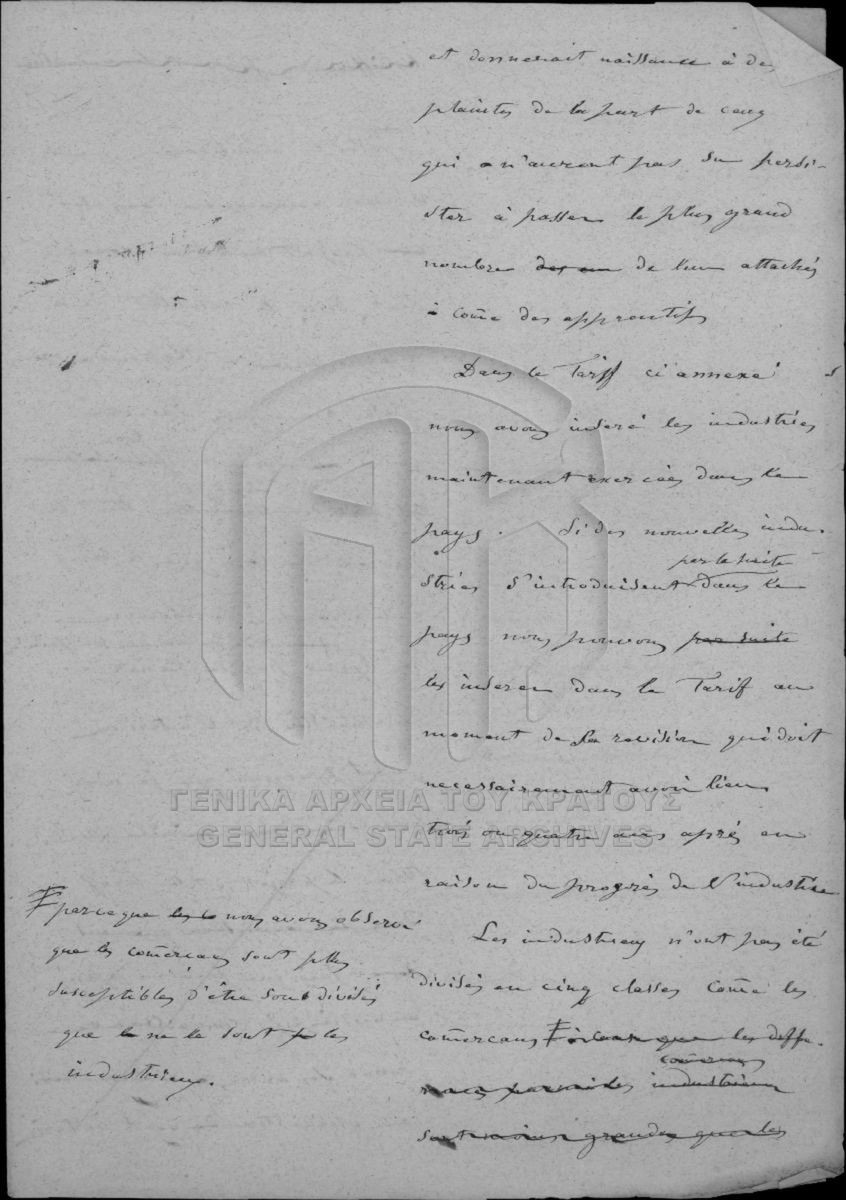 et donnerait naissance à des
plaintes de la part de ceux
qui n'auront pas su persi-
ster à passer le plus grand
nombre de leur attachés
à come des apprentifs
Dans le Tarif ci annexé
nous avons inseré les industries
maintenant exercées dans le
pays. Si des nouvelles indu-
par la suite
stries s'introduisent dans le
pays nous pouvons par suite
les inserer dans le Tarif au
moment de la revision qui doit
necessairement avoir lieu
trois ou quatre ans après en
raison du progrès de l'industrie
Les industriens n'ont pas été
divisés en cinq classes come les
comercans que les diffe-
industriens
grandes que les
parceque nous avons observé
que les comercans sont plus
susceptibles d'être sous divisés
que ne le sont les
industriens.
ΓΕΝΙΚΑ ΑΡΧΕΙΑ ΤΟΥ ΚΡΑΤΟΥΣ
GENERAL STATE ARCHIVES